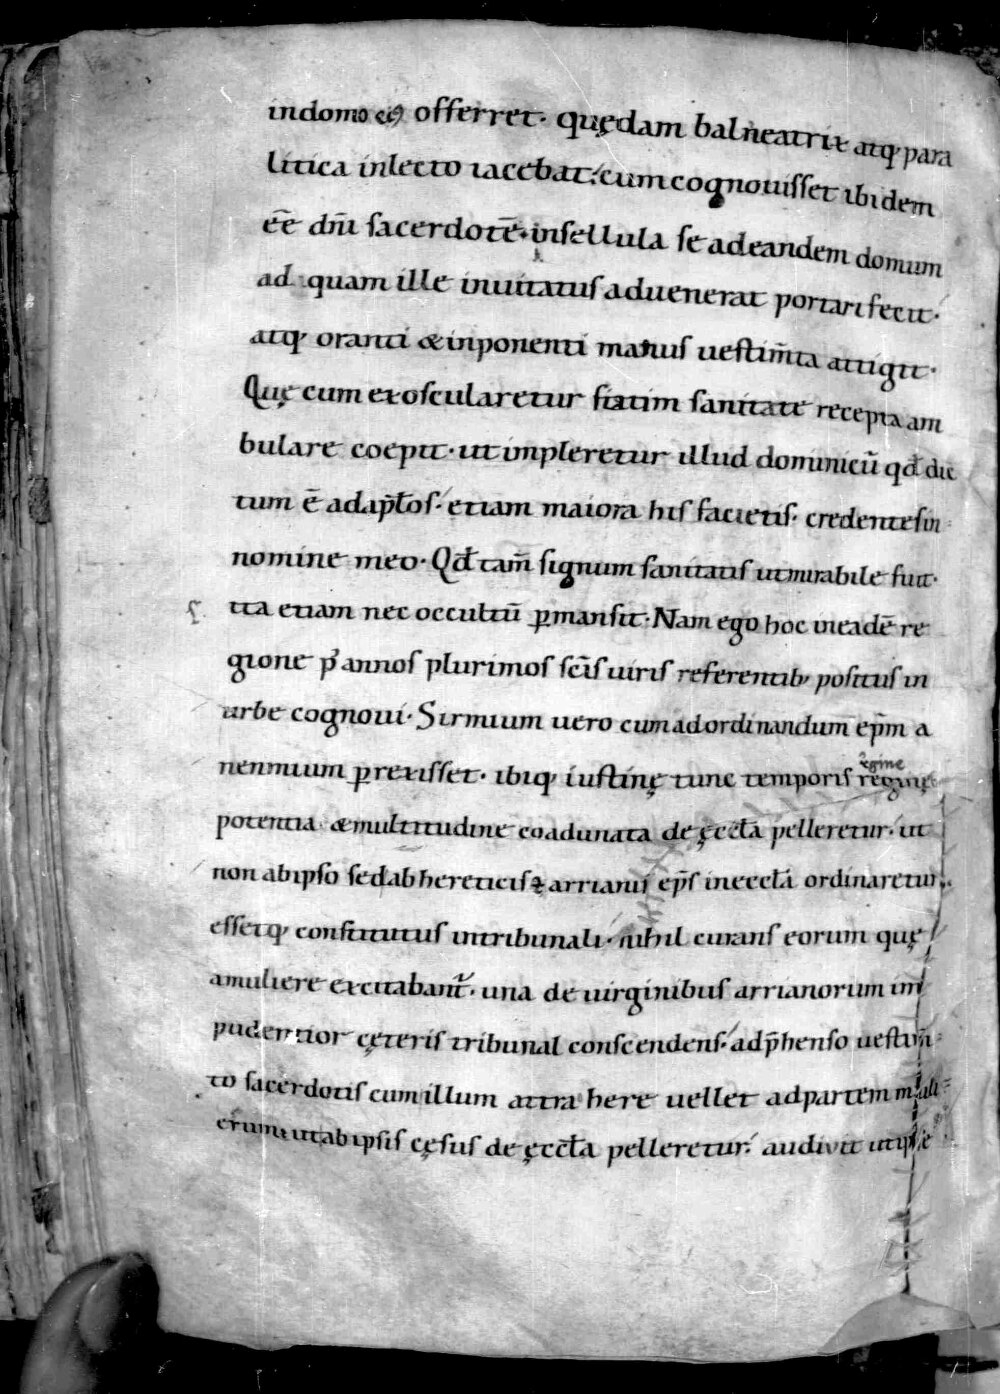 indomo ei offerret · quędam balneatrix atq; para
litica inlecto iacebat; cum cognouisset ibidem
eē dn̄i sacerdotē · insellula se adeandem domum
ad quam ille inuitatus aduenerat portari fecit ·
atq; oranti & inponenti manus uestim̄ta attigit ·
Quę cum exoscularetur statim sanitate recepta am
bulare coepit · ut impleretur illud dominicū qđ dic
tum ē adapłos · etiam maiora his facietis · credentes in
nomine meo · Qđ tam̄ signum sanitatis utmirabile fuit ·
ita etiam nec occultū ꝑmansit · Nam ego hoc ineadē re
gione p᷒ annos plurimos scīs uiris referentib; positus in
urbe cognoui · Sirmium uero cum adordinandum ep̄m a
nemmium ꝑrexisset · ibiq; iustinę tunc temporis reginę
regine
potentia & multitudine coadunata de ęccła pelleretur · ut
non abipso sedab hereticis & arrianis ep̄s ineccła ordinaretur ·
essetq; constitutus intribunali · nihil curans eorum quę
amuliere excitabant᷑ · una de uirginibus arrianorum im
pudentior cęteris tribunal conscendens · adp̄henso uestim̄
to sacerdotis cum illum attrahere uellet adpartem muli
erum ut ab ipsis cęsus de ęccła pelleretur · audivit ut ipse